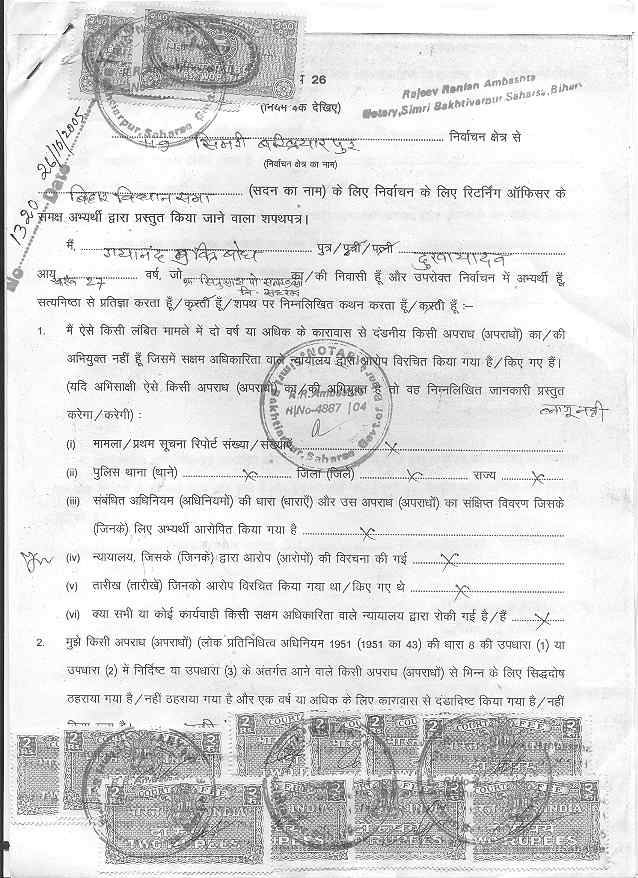 26
Rajeev Ranjan Ambashta
Notary, Simri Bakhtiyarpur Saharsa, Bihar
(नियम 4क देखिए)
निर्वाचन क्षेत्र से
(निर्वाचन क्षेत्र का नाम)
No 1320 Date 26/10/2005
बिहार विधान सभा (सदन का नाम) के लिए निर्वाचन के लिए रिटर्निंग ऑफिसर के
समक्ष अभ्यर्थी द्वारा प्रस्तुत किया जाने वाला शपथपत्र।
मैं, पुत्र/पुत्री/पत्नी
आयु 27 वर्ष, जो का/की निवासी हूँ और उपरोक्त निर्वाचन में अभ्यर्थी हूँ,
सत्यनिष्ठा से प्रतिज्ञा करता हूँ/करती हूँ/शपथ पर निम्नलिखित कथन करता हूँ/करती हूँ :–
1. मैं ऐसे किसी लंबित मामले में दो वर्ष या अधिक के कारावास से दंडनीय किसी अपराध (अपराधों) का/की
अभियुक्त नहीं हूँ जिसमें सक्षम अधिकारिता वाले न्यायालय द्वारा आरोप विरचित किया गया है/किए गए हैं।
(यदि अभिसाक्षी ऐसे किसी अपराध (अपराधों) का/की अभियुक्त है तो वह निम्नलिखित जानकारी प्रस्तुत
करेगा/करेगी) :
लागू नहीं
NOTARY
R.R. Ambashta
R/No-4867/04
Bakhtiarpur, Saharsa Govt. of
(i) मामला/प्रथम सूचना रिपोर्ट संख्या/संख्याएं X
(ii) पुलिस थाना (थाने) X जिला (जिले) X राज्य X
(iii) संबंधित अधिनियम (अधिनियमों) की धारा (धाराएँ) और उस अपराध (अपराधों) का संक्षिप्त विवरण जिसके
(जिनके) लिए अभ्यर्थी आरोपित किया गया है X
(iv) न्यायालय, जिसके (जिनके) द्वारा आरोप (आरोपों) की विरचना की गई X
(v) तारीख (तारीखें) जिनको आरोप विरचित किया गया था/किए गए थे X
(vi) क्या सभी या कोई कार्यवाही किसी सक्षम अधिकारिता वाले न्यायालय द्वारा रोकी गई है/हैं X
2. मुझे किसी अपराध (अपराधों) (लोक प्रतिनिधित्व अधिनियम 1951 (1951 का 43) की धारा 8 की उपधारा (1) या
उपधारा (2) में निर्दिष्ट या उपधारा (3) के अंतर्गत आने वाले किसी अपराध (अपराधों) से भिन्न के लिए सिद्धदोष
ठहराया गया है/नहीं ठहराया गया है और एक वर्ष या अधिक के लिए कारावास से दंडादिष्ट किया गया है/नहीं
COURT FEE
INDIA
TWO RUPEES
RUPEES